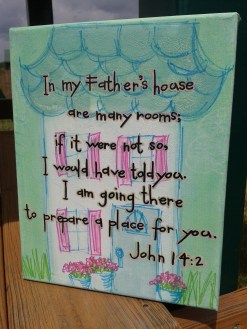 In my Father's house
are many rooms;
if it were not so,
I would have told you.
I am going there
to prepare a place for you.
John 14:2